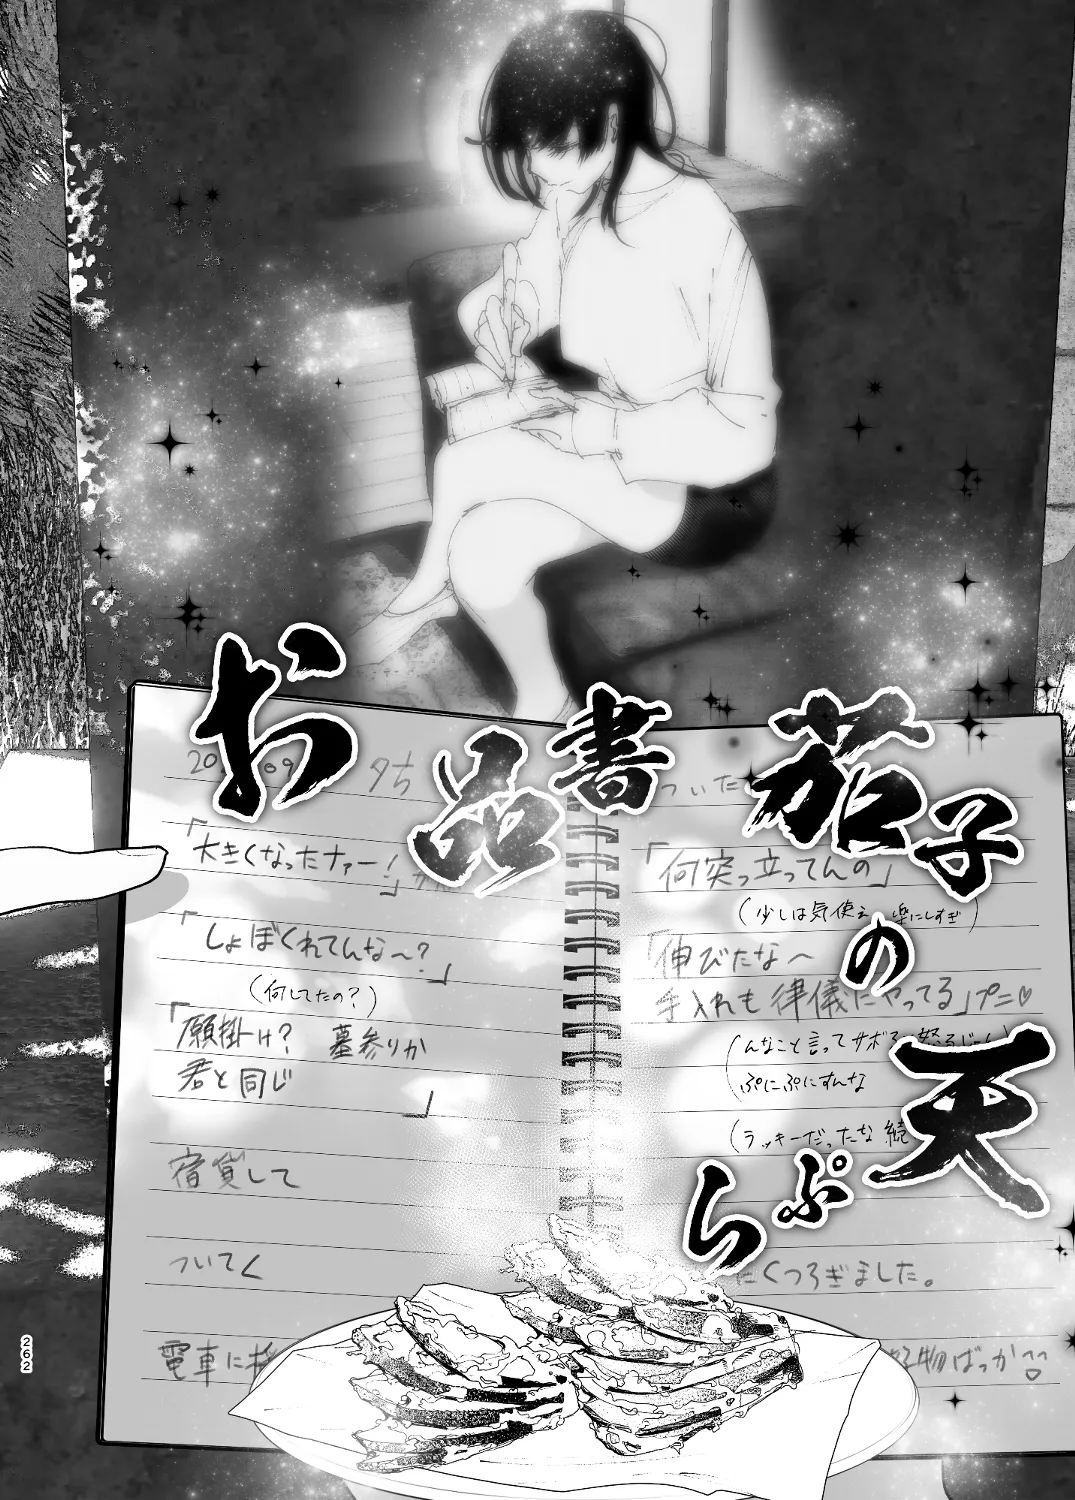 お品書
茄子の天ぷら
夕方
「大きくなったナァー!」
「しょぼくれてんな〜?」
(何してたの?)
「願掛け? 墓参りか
君と同じ
」
宿貸して
ついてく
電車に
ついた
「何突っ立ってんの」
(少しは気使え 楽にしすぎ)
「伸びたな〜
手入れも律儀にやってる」プニ♡
(んなこと言ってサボる
ぷにぷにすんな
(ラッキーだったな 続
くつろぎました。
物ばっか
262